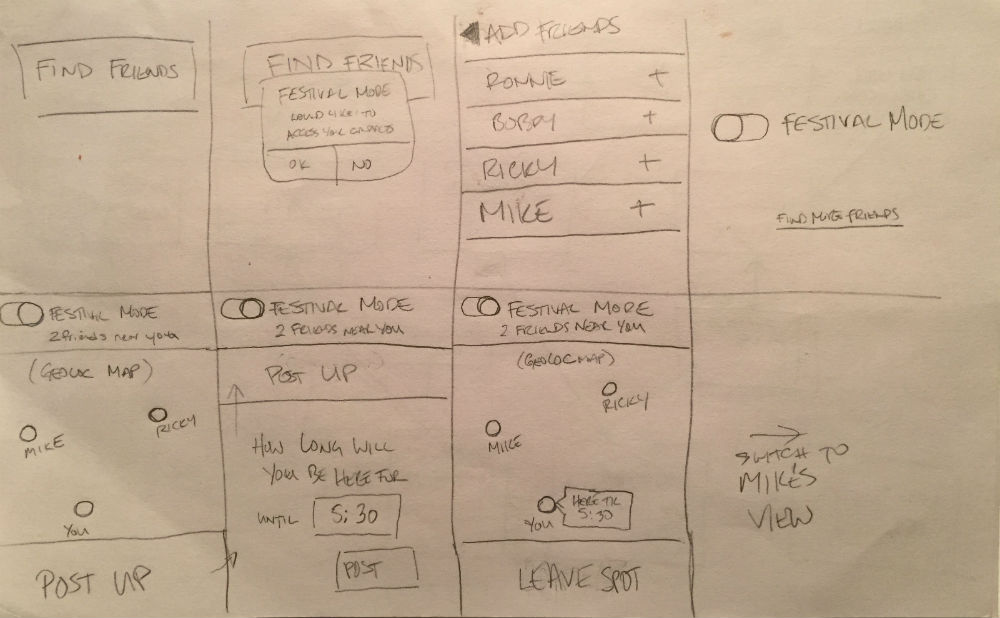 FIND FRIENDS
FIND FRIENDS
FESTIVAL MODE
WOULD LIKE TO
ACCESS YOUR CONTACTS
OK NO
ADD FRIENDS
RONNIE +
BOBBY +
RICKY +
MIKE +
FESTIVAL MODE
FIND MORE FRIENDS
FESTIVAL MODE
2 friends near you
(GEOLOC MAP)
RICKY
MIKE
YOU
POST UP
FESTIVAL MODE
2 FRIENDS NEAR YOU
POST UP
HOW LONG WILL
YOU BE HERE FOR
UNTIL 5:30
POST
FESTIVAL MODE
2 FRIENDS NEAR YOU
(GEOLOC MAP)
RICKY
MIKE
HERE TIL
5:30
YOU
LEAVE SPOT
SWITCH TO
MIKE'S
VIEW